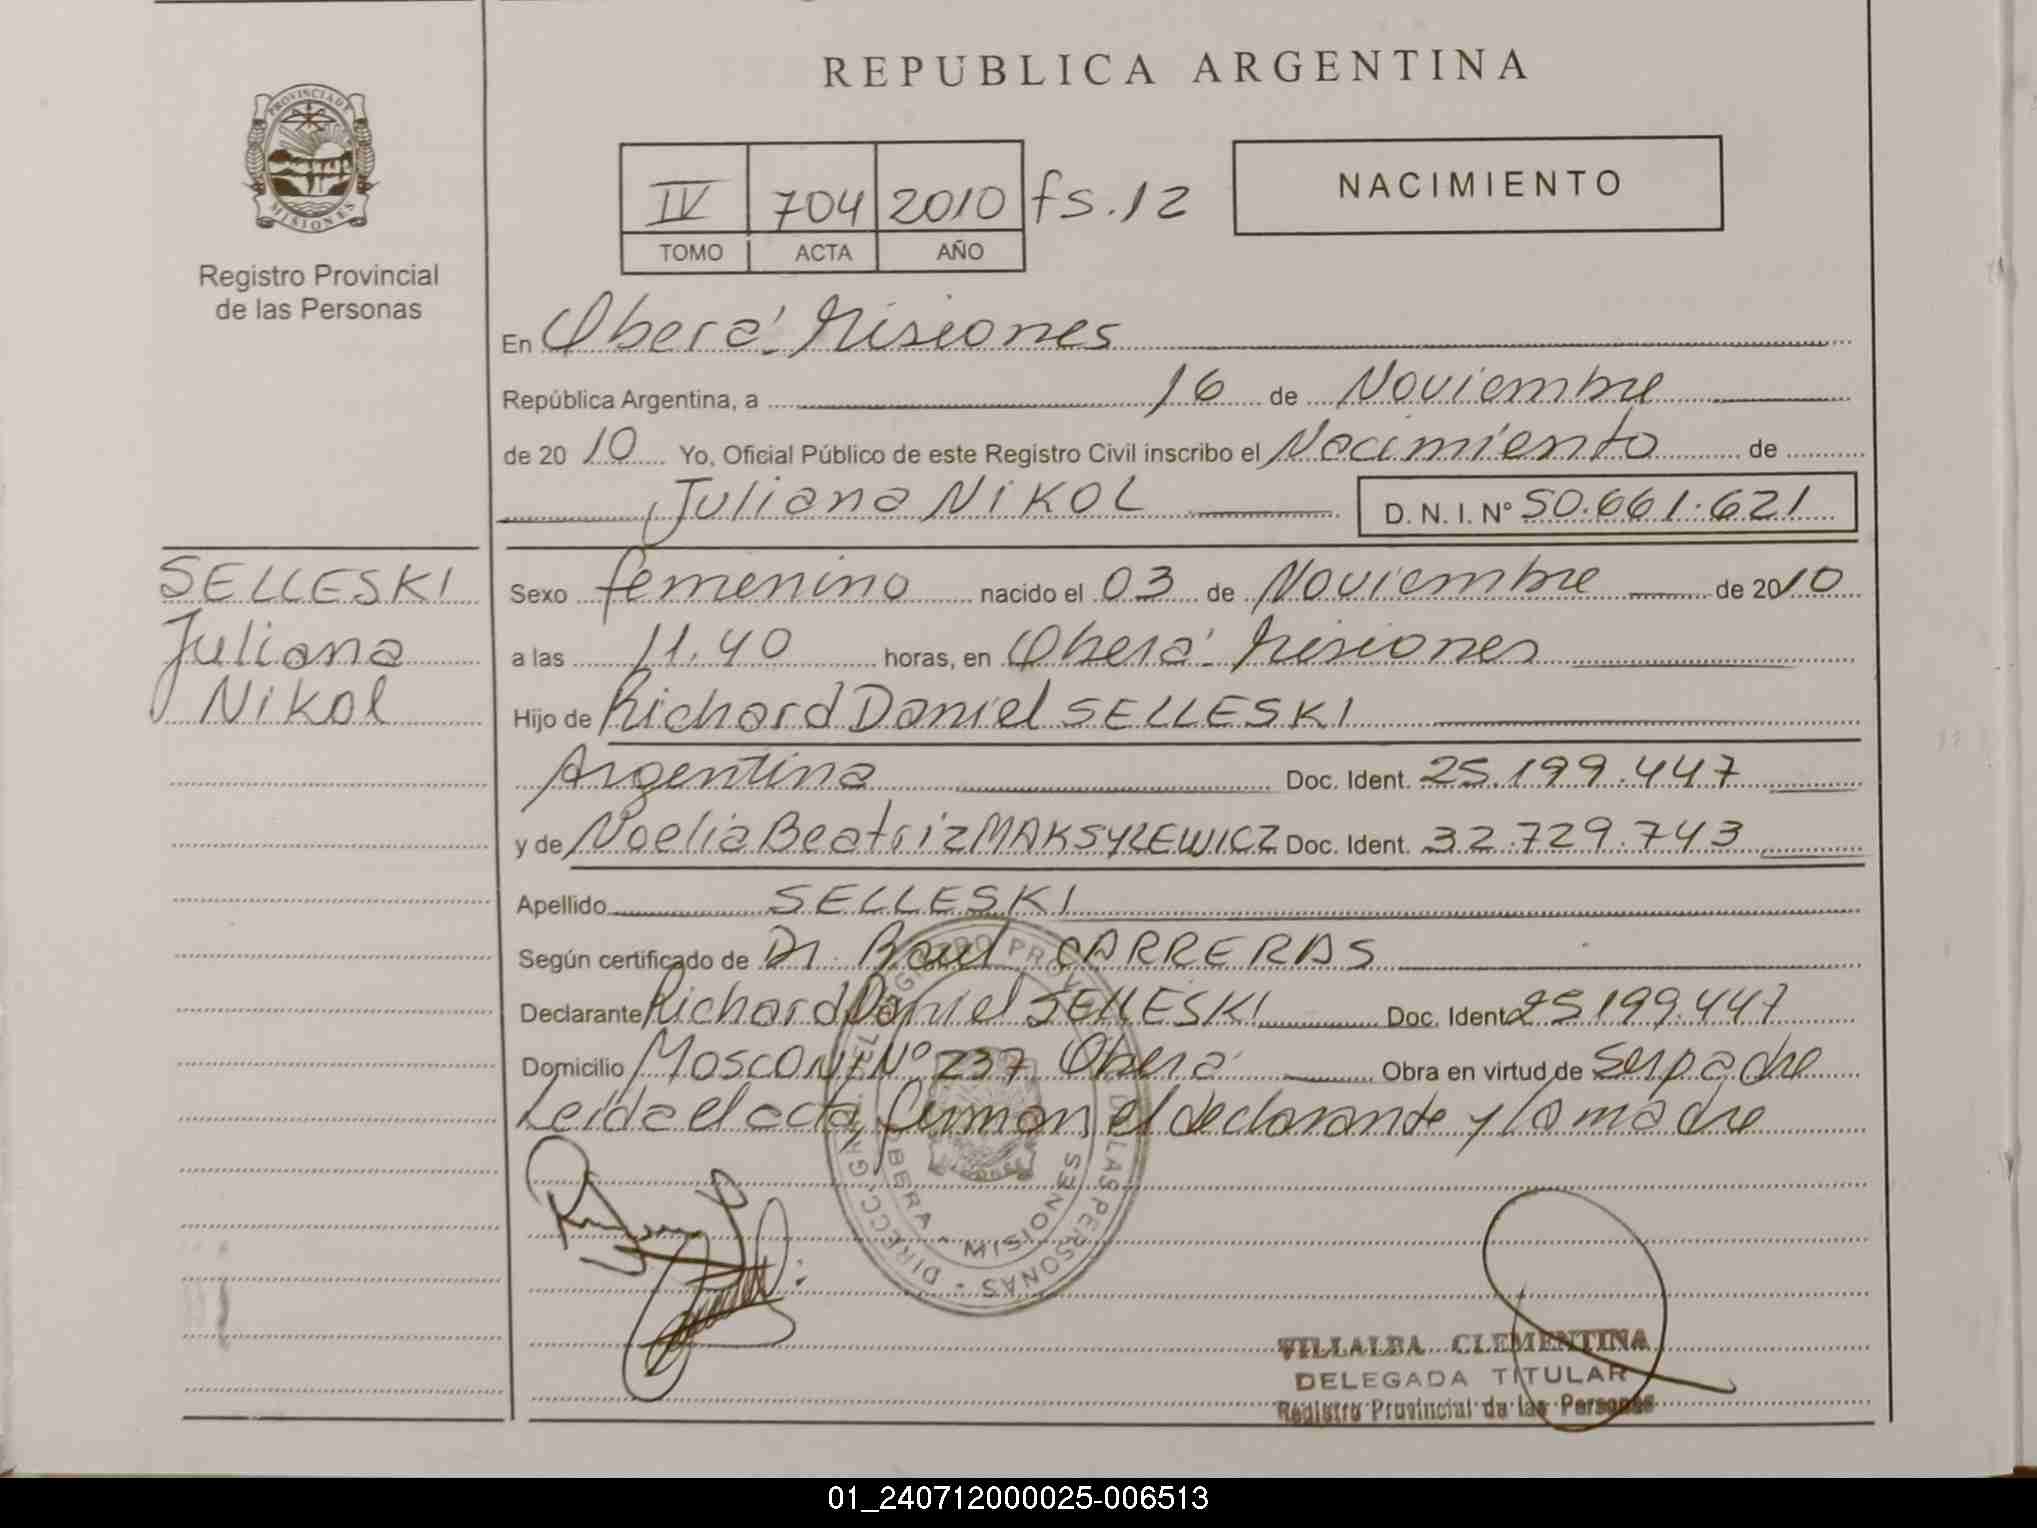 REPUBLICA ARGENTINA
PROVINCIA DE MISIONES
Registro Provincial
de las Personas
IV 704 2010 fs.12
TOMO ACTA AÑO
NACIMIENTO
En Oberá Misiones
República Argentina, a 16 de Noviembre
de 2010 Yo, Oficial Público de este Registro Civil inscribo el Nacimiento de
Juliana NIKOL D. N. I. N° 50.661.621
SELLESKI
Juliana
Nikol
Sexo femenino nacido el 03 de Noviembre de 2010
a las 11.40 horas, en Oberá Misiones
Hijo de Richard Daniel SELLESKI
Argentina Doc. Ident. 25.199.447
y de Noelia Beatriz MAKSYLEWICZ Doc. Ident. 32.729.743
Apellido SELLESKI
Según certificado de Dr. Raul CARRERAS
Declarante Richard Daniel SELLESKI Doc. Ident 25199.447
Domicilio MOSCONI N° 237 Oberá Obra en virtud de ser padre
Leida el acta, firman el declarante y la madre
DIRECC. GRAL. DEL REGISTRO PROV. DE LAS PERSONAS
OBERA - MISIONES
VILLALBA CLEMENTINA
DELEGADA TITULAR
Registro Provincial de las Personas
01_240712000025-006513